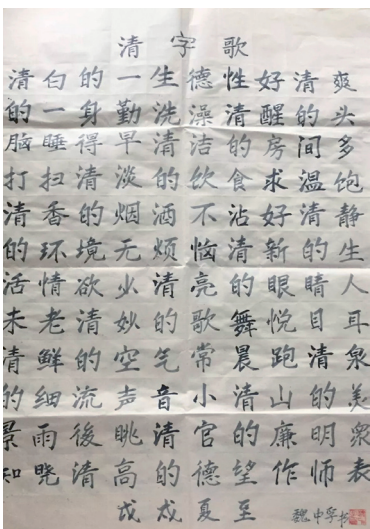 清字歌
清白的一生德性好清爽
的一身勤洗澡清醒的头
脑睡得早清洁的房间多
打扫清淡的饮食求温饱
清香的烟酒不沾好清静
的环境无烦恼清新的生
活情欲少清亮的眼睛人
未老清妙的歌舞悦目耳
清鲜的空气常晨跑清泉
的细流声音小清山的美
景雨後眺清官的廉明众
知晓清高的德望作师表
戊戌夏至 魏中孚书